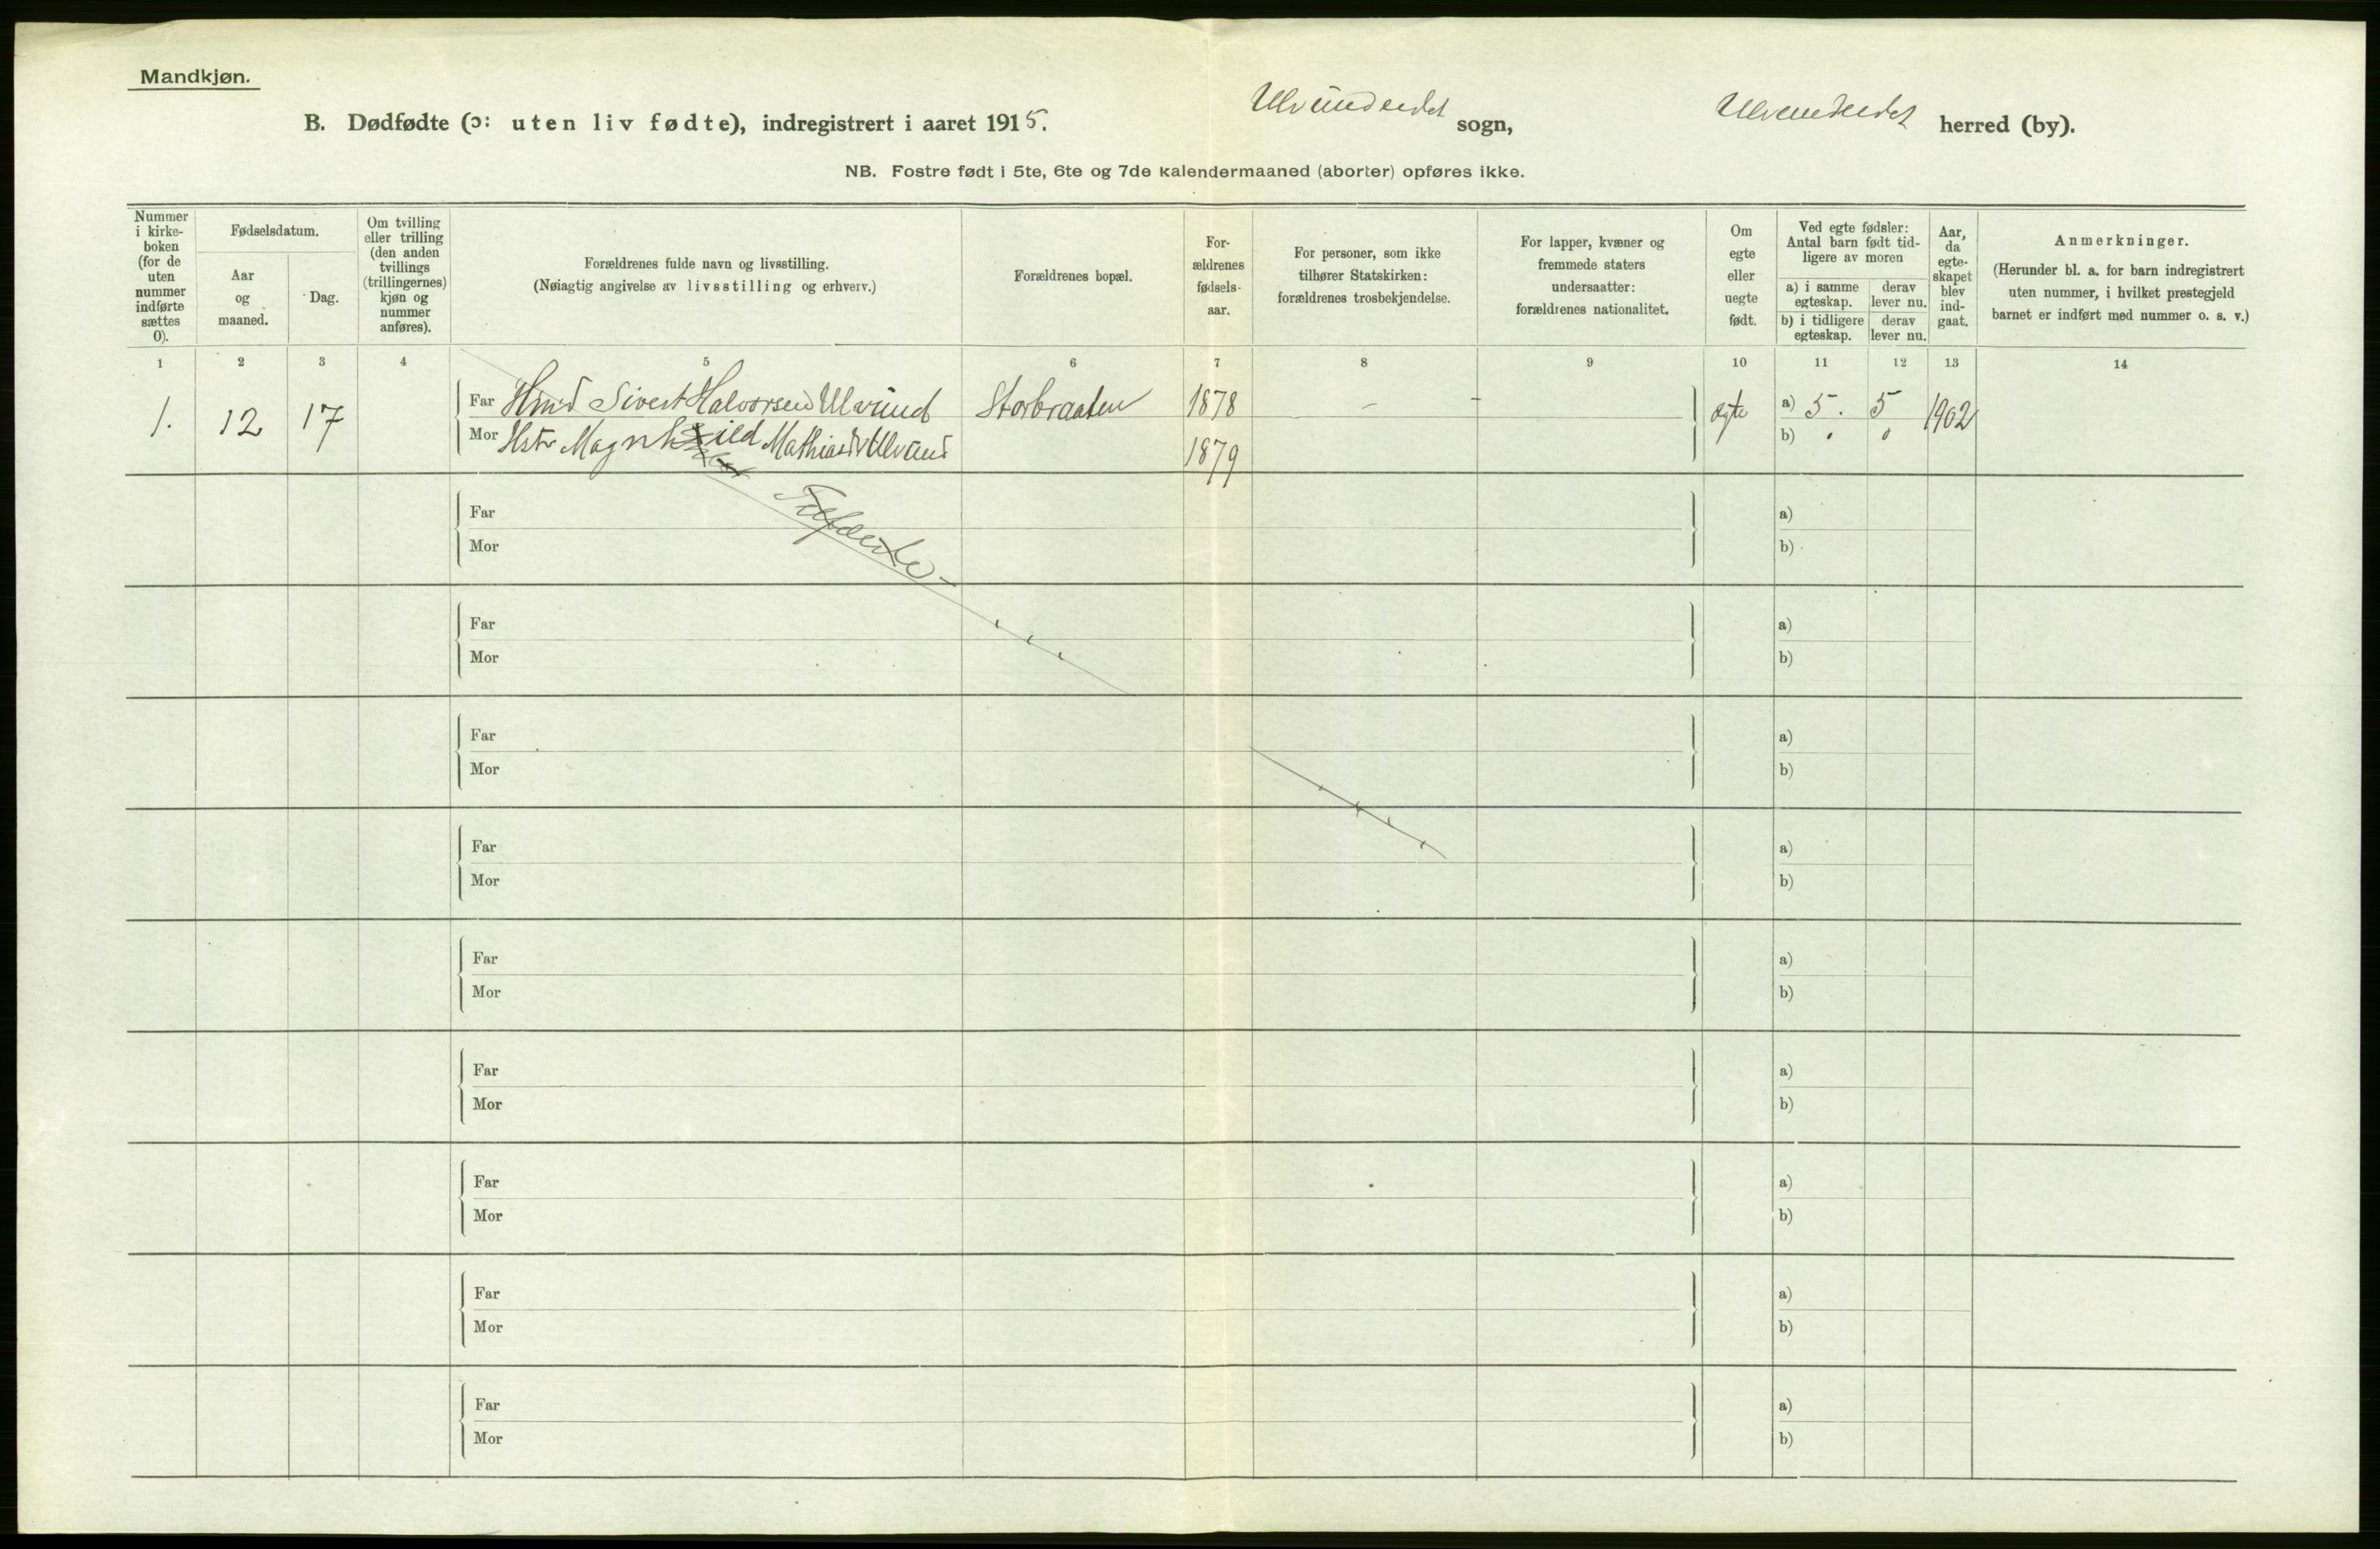 Mandkjøn.
B. Dødfødte (ɔ: uten liv fødte), indregistrert i aaret 1915. Ulvundeidet sogn, Ulvundeidet herred (by).
NB. Fostre født i 5te, 6te og 7de kalendermaaned (aborter) opføres ikke.
Nummer i kirke-boken (for de uten nummer indførte sættes 0).
Fødselsdatum.
Aar og maaned.
Dag.
Om tvilling eller trilling (den anden tvillings (trillingernes) kjøn og nummer anføres).
Forældrenes fulde navn og livsstilling.
(Nøiagtig angivelse av livsstilling og erhverv.)
Forældrenes bopæl.
For-ældrenes fødsels-aar.
For personer, som ikke tilhører Statskirken: forældrenes trosbekjendelse.
For lapper, kvæner og fremmede staters undersaatter: forældrenes nationalitet.
Om egte eller uegte født.
Ved egte fødsler: Antal barn født tid-ligere av moren
a) i samme egteskap. derav lever nu.
b) i tidligere egteskap. derav lever nu.
Aar, da egte-skapet blev ind-gaat.
Anmerkninger.
(Herunder bl. a. for barn indregistrert uten nummer, i hvilket prestegjeld barnet er indført med nummer o. s. v.)
1 2 3 4 5 6 7 8 9 10 11 12 13 14
1. 12 17 Far Sivert Halvorsen Ulvund Storbraaten 1878 – – egte a) 5. 5 1902
Mor Hstr Magnhild Mathiasdtr Ulvund 1879 b) " "
Far a)
Mor b)
Far a)
Mor b)
Far a)
Mor b)
Far a)
Mor b)
Far a)
Mor b)
Far a)
Mor b)
Far a)
Mor b)
Far a)
Mor b)
Far a)
Mor b)